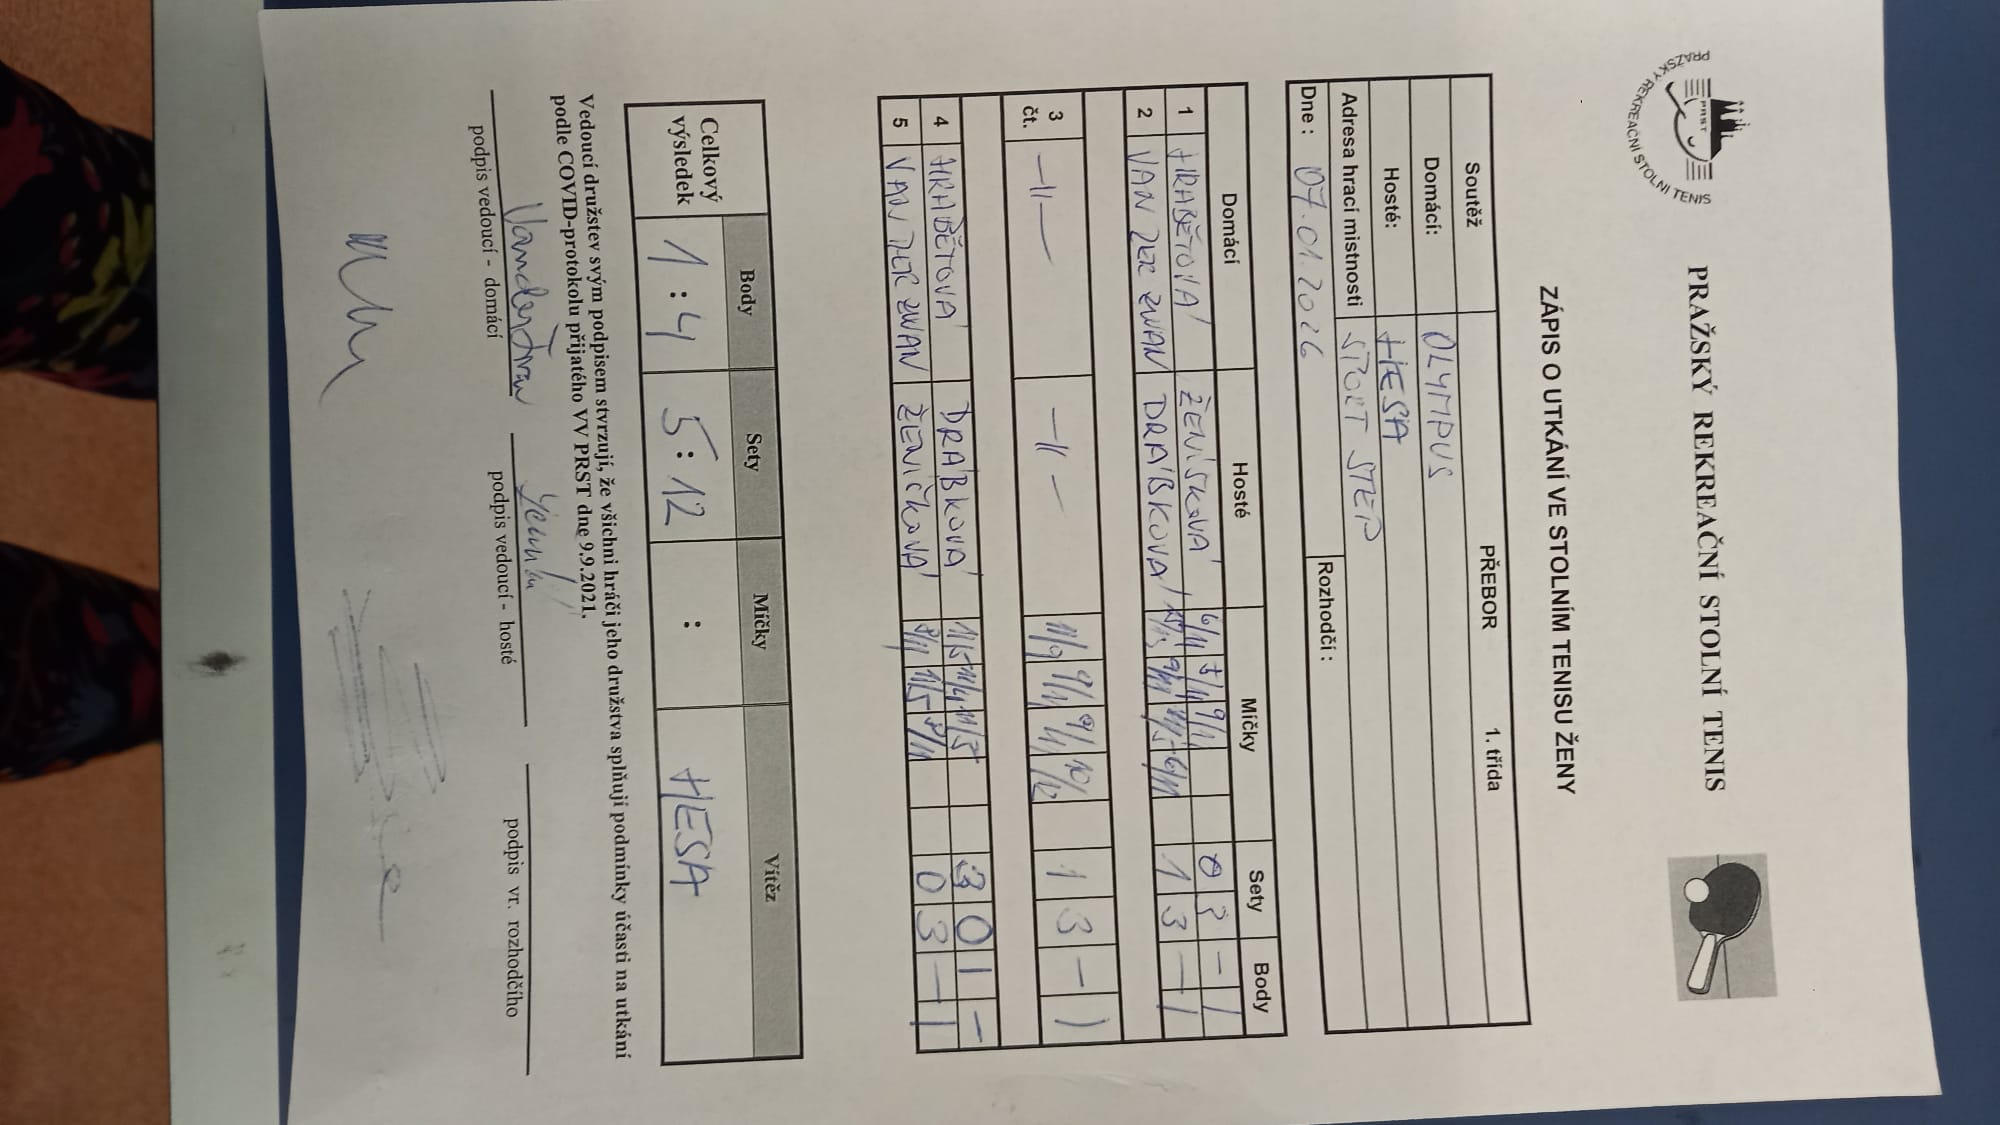 PRAŽSKÝ REKREAČNÍ STOLNÍ TENIS
PRAŽSKÝ REKREAČNÍ STOLNÍ TENIS
PRST
ZÁPIS O UTKÁNÍ VE STOLNÍM TENISU ŽENY
Soutěž PŘEBOR 1. třída
Domácí: OLYMPUS
Hosté: HESA
Adresa hrací mistnosti SPORT STEP
Dne : 07.01.2026 Rozhodčí :
Domácí Hosté Míčky Sety Body
1 HRABĚTOVÁ ŽENÍŠKOVÁ 6/11 5/11 9/11 0 3 - 1
2 VAN DER ZWAN DRÁBKOVÁ 9/11 11/5 6/11 1 3 - 1
3 čt. -||- -||- 11/9 9/11 9/11 10/12 1 3 - 1
4 HRABĚTOVÁ DRÁBKOVÁ 11/5 11/4 11/5 3 0 1 -
5 VAN DER ZWAN ŽENÍČKOVÁ 9/11 0 3 - 1
Celkový výsledek Body Sety Míčky Vítěz
1 : 4 5 : 12 : HESA
Vedoucí družstev svým podpisem stvrzují, že všichni hráči jeho družstva splňují podmínky účasti na utkání
podle COVID-protokolu přijatého VV PRST dne 9.9.2021.
podpis vedoucí - domácí podpis vedoucí - hosté podpis vr. rozhodčího